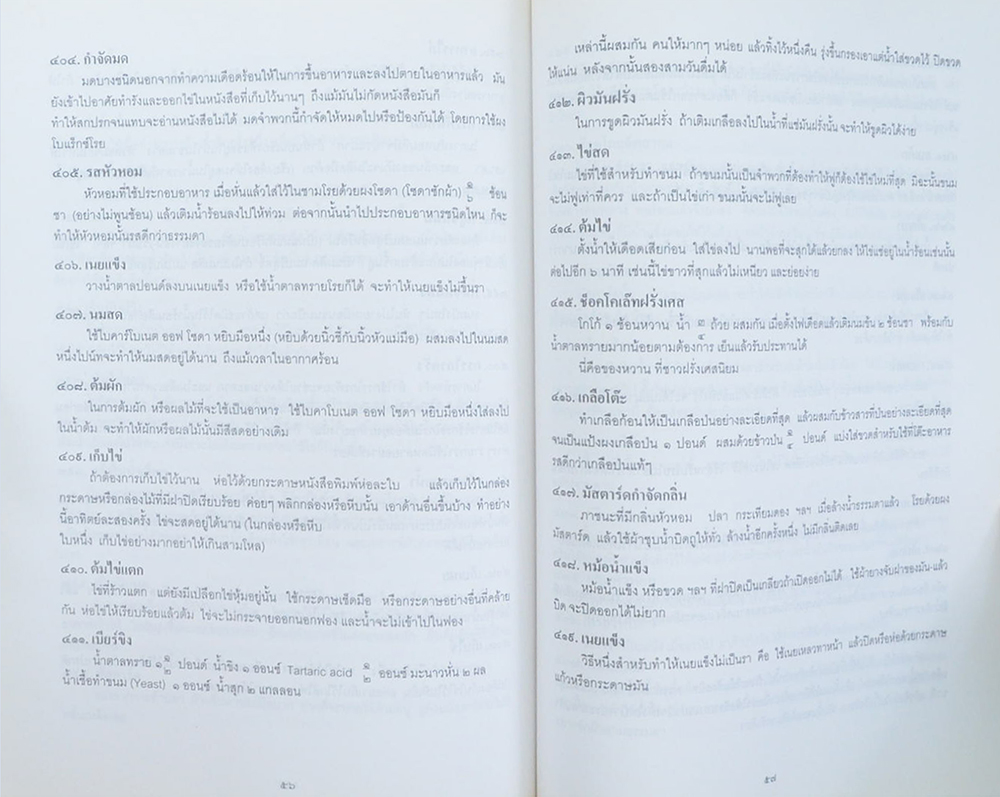 ๔๐๔. กำจัดมด
มดบางชนิดนอกจากทำความเดือดร้อนให้ในการขึ้นอาหารและลงไปตายในอาหารแล้ว มัน
ยังเข้าไปอาศัยทำรังและออกไข่ในหนังสือที่เก็บไว้นานๆ ถึงแม้มันไม่กัดหนังสือมันก็
ทำให้สกปรกจนแทบจะอ่านหนังสือไม่ได้ มดจำพวกนี้กำจัดให้หมดไปหรือป้องกันได้ โดยการใช้ผง
โบแร็กซ์โรย
๔๐๕. รสหัวหอม
หัวหอมที่ใช้ประกอบอาหาร เมื่อหั่นแล้วใส่ไว้ในชามโรยด้วยผงโซดา (โซดาซักผ้า) ๑/๖ ช้อน
ชา (อย่างไม่พูนช้อน) แล้วเติมน้ำร้อนลงไปให้ท่วม ต่อจากนั้นนำไปประกอบอาหารชนิดไหน ก็จะ
ทำให้หัวหอมนั้นรสดีกว่าธรรมดา
๔๐๖. เนยแข็ง
วางน้ำตาลปอนด์ลงบนเนยแข็ง หรือใช้น้ำตาลทรายโรยก็ได้ จะทำให้เนยแข็งไม่ขึ้นรา
๔๐๗. นมสด
ใช้ไบคาร์โบเนต ออฟ โซดา หยิบมือหนึ่ง (หยิบด้วยนิ้วชี้กับนิ้วหัวแม่มือ) ผสมลงไปในนมสด
หนึ่งไปน์ทจะทำให้นมสดอยู่ได้นาน ถึงแม้เวลาในอากาศร้อน
๔๐๘. ต้มผัก
ในการต้มผัก หรือผลไม้ที่จะใช้เป็นอาหาร ใช้ไบคาโบเนต ออฟ โซดา หยิบมือหนึ่งใส่ลงไป
ในน้ำต้ม จะทำให้ผักหรือผลไม้นั้นมีสีสดอย่างเดิม
๔๐๙. เก็บไข่
ถ้าต้องการเก็บไข่ไว้นาน ห่อไว้ด้วยกระดาษหนังสือพิมพ์ห่อละใบ แล้วเก็บไว้ในกล่อง
กระดาษหรือกล่องไม้ที่มีฝาปิดเรียบร้อย ค่อยๆ พลิกกล่องหรือหีบนั้น เอาด้านอื่นขึ้นบ้าง ทำอย่าง
นี้อาทิตย์ละสองครั้ง ไข่จะสดอยู่ได้นาน (ในกล่องหรือหีบ
ใบหนึ่ง เก็บไข่อย่างมากอย่าให้เกินสามโหล)
๔๑๐. ต้มไข่แตก
ไข่ที่ร้าวแตก แต่ยังมีเปลือกไข่หุ้มอยู่นั้น ใช้กระดาษเช็ดมือ หรือกระดาษอย่างอื่นที่คล้าย
กัน ห่อไข่ให้เรียบร้อยแล้วต้ม ไข่จะไม่กระจายออกนอกฟอง และน้ำจะไม่เข้าไปในฟอง
๔๑๑. เบียร์ขิง
น้ำตาลทราย ๑ ๑/๒ ปอนด์ น้ำขิง ๑ ออนซ์ Tartaric acid ๑/๒ ออนซ์ มะนาวหั่น ๒ ผล
น้ำเชื้อทำขนม (Yeast) ๑ ออนซ์ น้ำสุก ๒ แกลลอน
๕๖
เหล่านี้ผสมกัน คนให้มากๆ หน่อย แล้วทิ้งไว้หนึ่งคืน รุ่งขึ้นกรองเอาแต่น้ำใส่ขวดไว้ ปิดขวด
ให้แน่น หลังจากนั้นสองสามวันดื่มได้
๔๑๒. ผิวมันฝรั่ง
ในการขูดผิวมันฝรั่ง ถ้าเติมเกลือลงไปในน้ำที่แช่มันฝรั่งนั้น จะทำให้ขูดผิวได้ง่าย
๔๑๓. ไข่สด
ไข่ที่ใช้สำหรับทำขนม ถ้าขนมนั้นเป็นจำพวกที่ต้องทำให้ฟูก็ต้องใช้ไข่ใหม่ที่สุด มิฉะนั้นขนม
จะไม่ฟูเท่าที่ควร และถ้าเป็นไข่เก่า ขนมนั้นจะไม่ฟูเลย
๔๑๔. ต้มไข่
ตั้งน้ำให้เดือดเสียก่อน ใส่ไข่ลงไป นานพอที่จะสุกได้แล้วยกลง ให้ไข่แช่อยู่ในน้ำร้อนเช่นนั้น
ต่อไปอีก ๖ นาที เช่นนี้ไข่ขาวที่สุกแล้วไม่เหนียว และย่อยง่าย
๔๑๕. ช็อคโคเล็ทฝรั่งเศส
โกโก้ ๑ ช้อนหวาน น้ำ ๓/๔ ถ้วย ผสมกัน เมื่อตั้งไฟเดือดแล้วเติมนมข้น ๒ ช้อนชา พร้อมกับ
น้ำตาลทรายมากน้อยตามต้องการ เย็นแล้วรับประทานได้
นี่คือของหวาน ที่ชาวฝรั่งเศสนิยม
๔๑๖. เกลือโต๊ะ
ทำเกลือก้อนให้เป็นเกลือป่นอย่างละเอียดที่สุด แล้วผสมกับข้าวสารที่ป่นอย่างละเอียดที่สุด
จนเป็นแป้งผงเกลือป่น ๑ ปอนด์ ผสมด้วยข้าวป่น ๑/๔ ปอนด์ แบ่งใส่ขวดสำหรับใช้ที่โต๊ะอาหาร
รสดีกว่าเกลือป่นแท้ๆ
๔๑๗. มัสตาร์ดกำจัดกลิ่น
ภาชนะที่มีกลิ่นหัวหอม ปลา กระเทียมดอง ฯลฯ เมื่อล้างน้ำธรรมดาแล้ว โรยด้วยผง
มัสตาร์ด แล้วใช้ผ้าชุบน้ำบิดถูให้ทั่ว ล้างน้ำอีกครั้งหนึ่ง ไม่มีกลิ่นติดเลย
๔๑๘. หม้อน้ำแข็ง
หม้อน้ำแข็ง หรือขวด ฯลฯ ที่ฝาปิดเป็นเกลียวถ้าเปิดออกไม่ได้ ใช้ผ้ายางจับฝาของมัน-แล้ว
บิด จะปิดออกได้ไม่ยาก
๔๑๙. เนยแข็ง
วิธีหนึ่งสำหรับทำให้เนยแข็งไม่เป็นรา คือ ใช้เนยเหลวทาหน้า แล้วปิดหรือห่อด้วยกระดาษ
แก้วหรือกระดาษมัน
๕๗